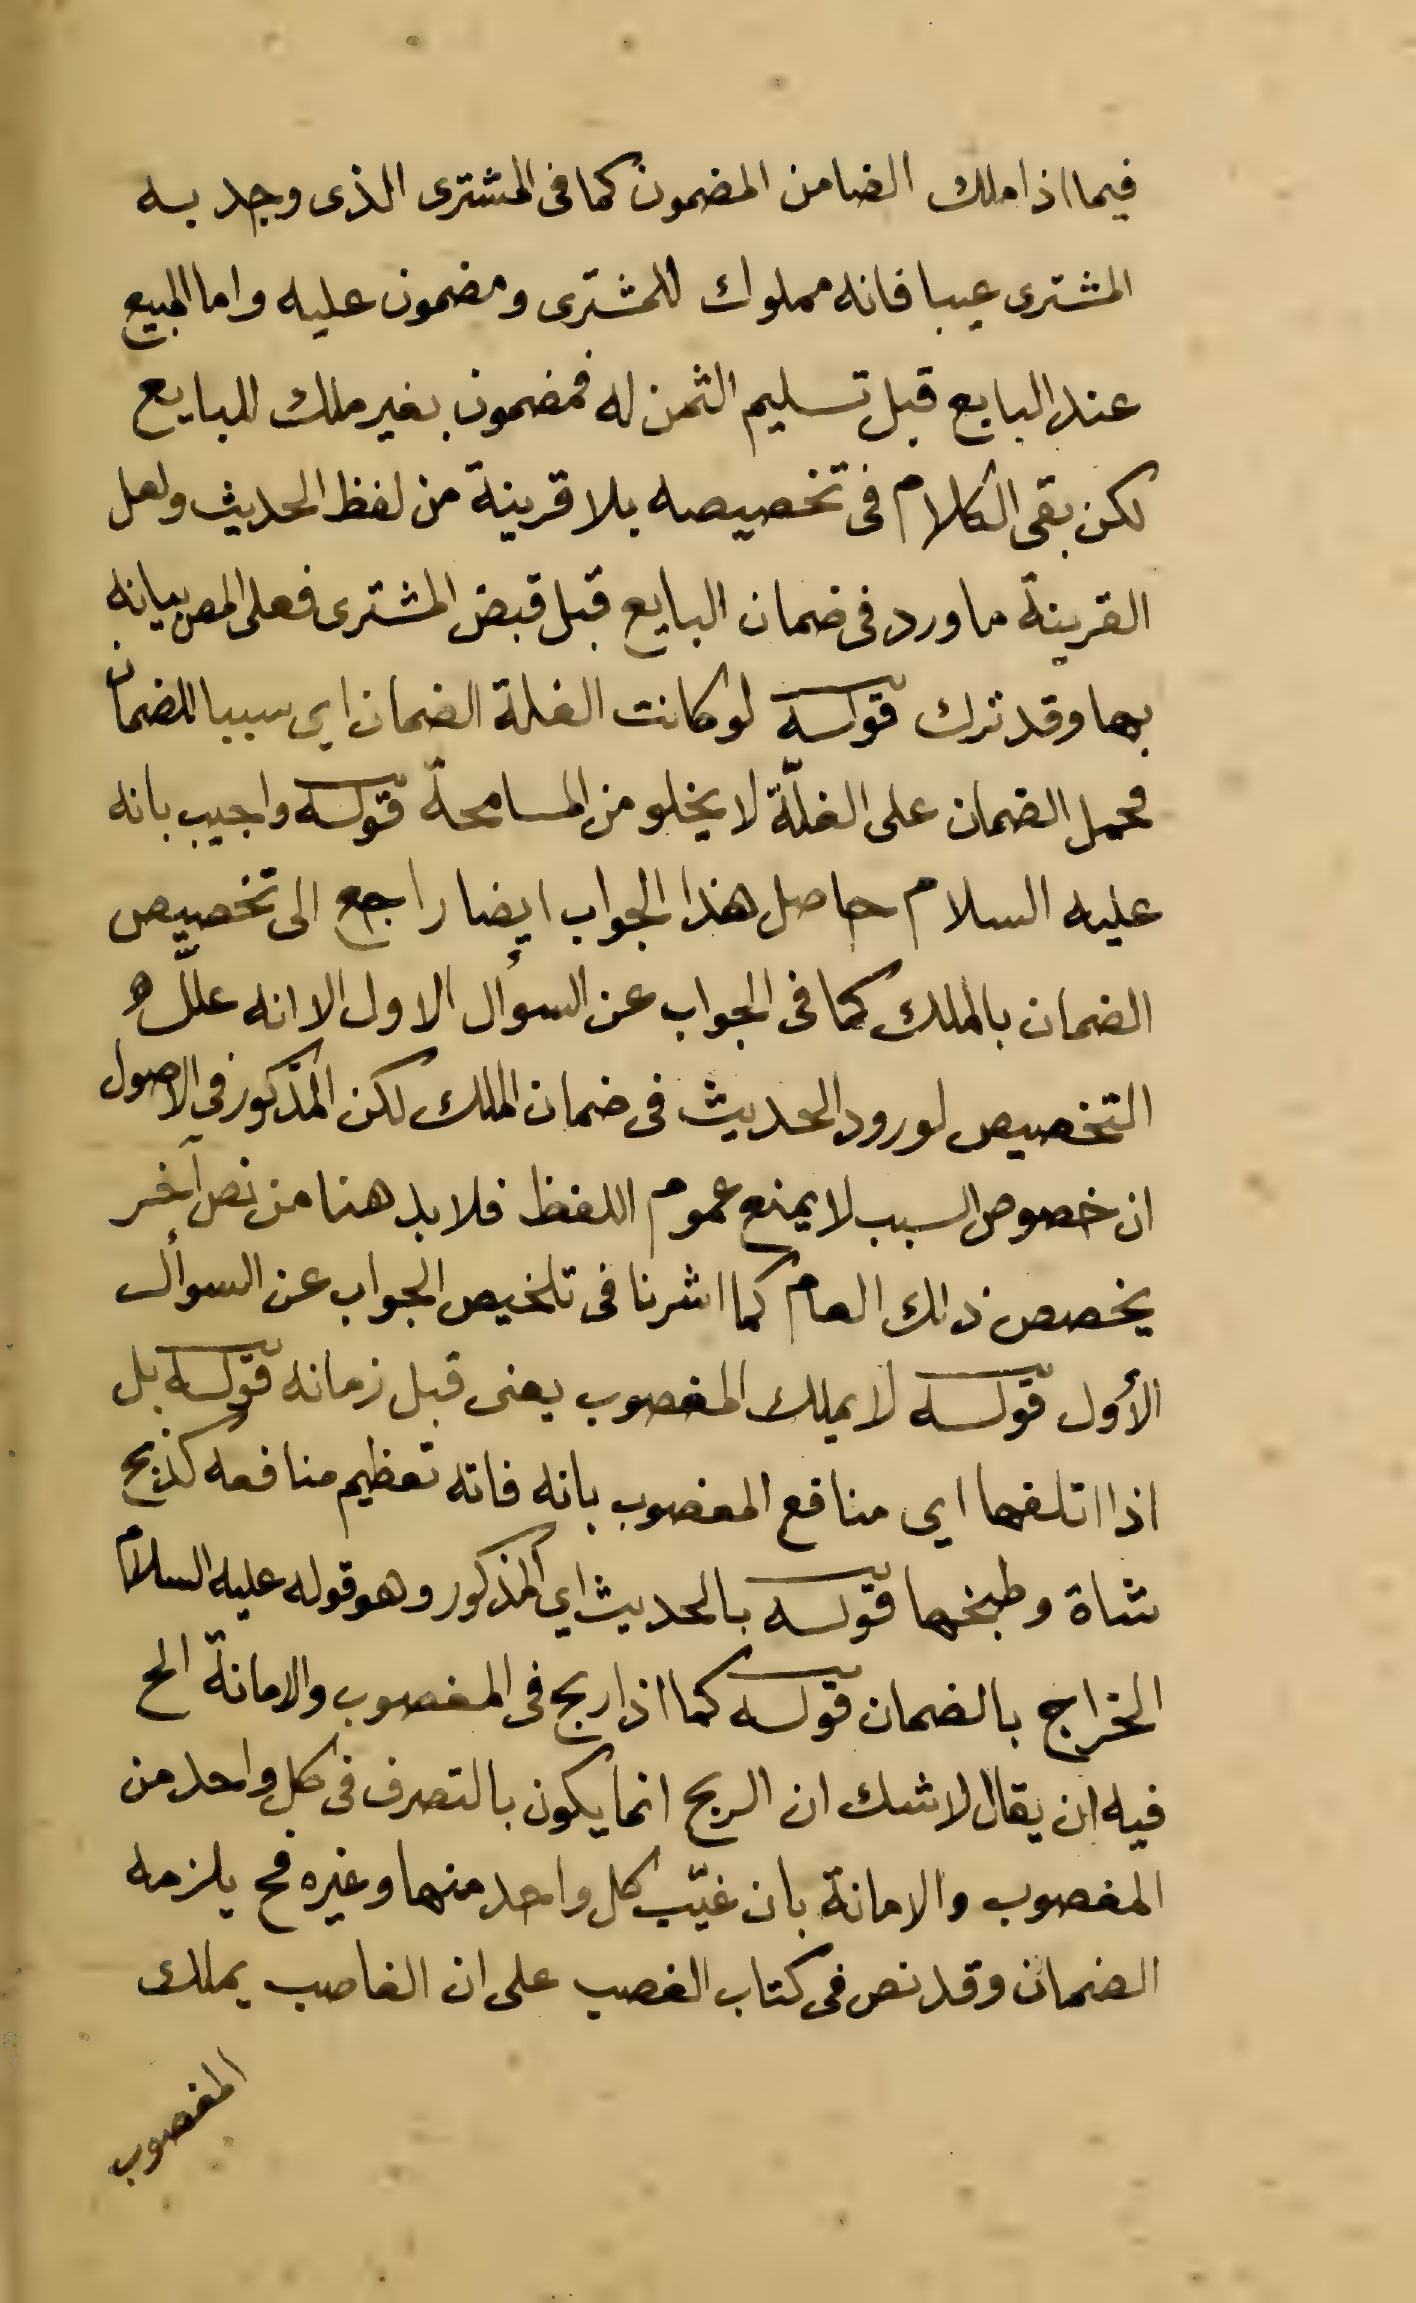 فيما اذا ملك الضامن المضمون كما فى المشترى الذى وجد به
المشترى عيبا فانه مملوك للمشترى ومضمون عليه واما المبيع
عند البايع قبل تسليم الثمن له فمضمون بغير ملك للبايع
لكن بقى الكلام فى تخصيصه بلا قرينة من لفظ الحديث ولعل
القرينة ما ورد فى ضمان البايع قبل قبض المشترى فعلى المص بيانه
بها وقد ترك قوله لو كانت الغلة الضمان اى سببا للضمان
فحمل الضمان على الغلّة لا يخلو من المسامحة قوله واجيب بانه
عليه السلام حاصل هذا الجواب ايضا راجع الى تخصيص
الضمان بالملك كما فى الجواب عن السؤال الاول الا انه علّل
التخصيص لورود الحديث فى ضمان الملك لكن المذكور فى الاصول
ان خصوص السبب لا يمنع عموم اللفظ فلا بد هنا من نص آخر
يخصص ذلك العام كما اشرنا فى تلخيص الجواب عن السؤال
الأول قوله لا يملك المغصوب يعنى قبل زمانه قوله بل
اذا اتلفها اى منافع المغصوب بانه فاته تعظيم منافعه كذبح
شاة وطبخها قوله بالحديث اى المذكور وهو قوله عليه السلام
الخراج بالضمان قوله كما اذا ربح فى المغصوب والامانة الح
فيه ان يقال لا شك ان الربح انما يكون بالتصرف فى كل واحد من
المغصوب والامانة بان غيّب كل واحد منهما وغيره فح يلزمه
الضمان وقد نص فى كتاب الغصب على ان الغاصب يملك
المغصوب